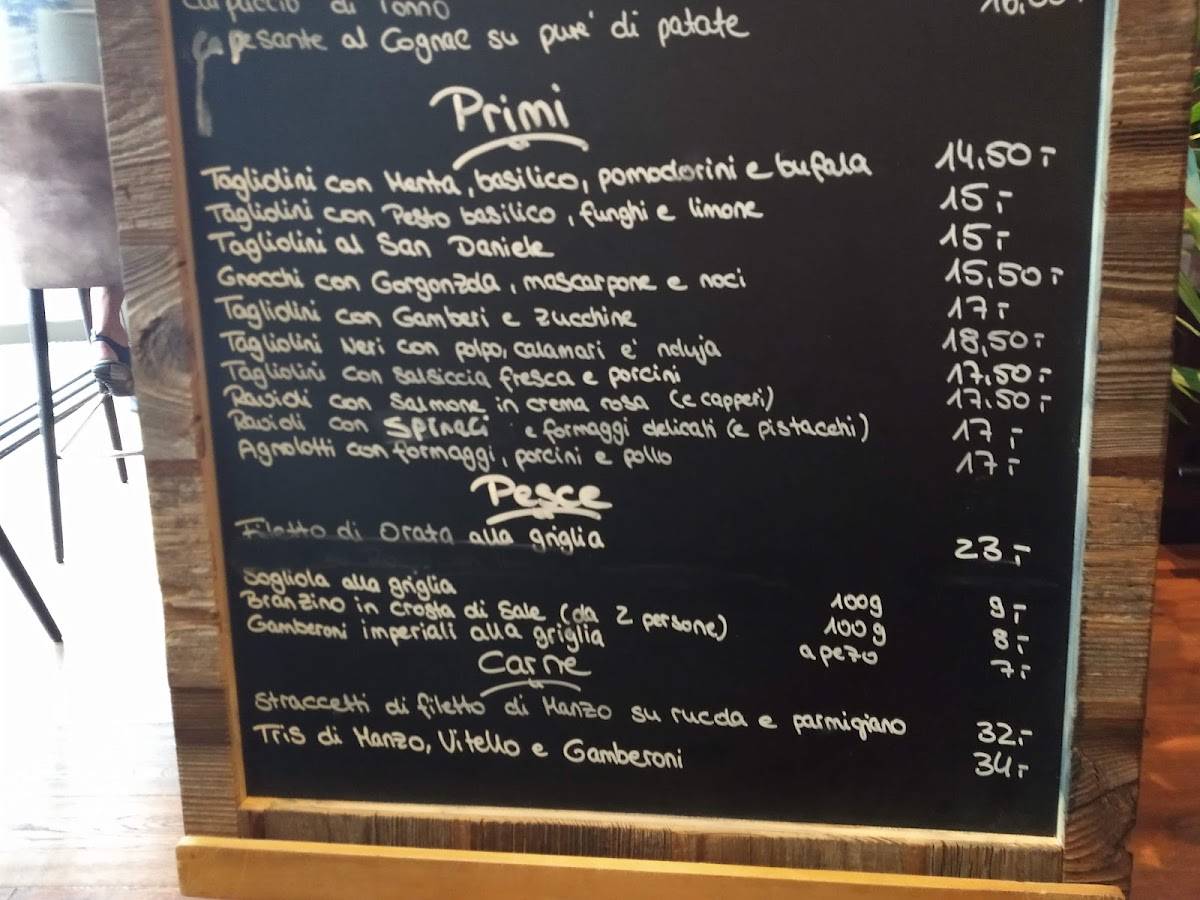 Carpaccio di Tonno 16,00
Capesante al Cognac su pure' di patate
Primi
Tagliolini con Menta, basilico, pomodorini e bufala 14,50.-
Tagliolini con Pesto basilico, funghi e limone 15,-
Tagliolini al San Daniele 15,-
Gnocchi con Gorgonzola, mascarpone e noci 15,50,-
Tagliolini con Gamberi e zucchine 17,-
Tagliolini Neri con polpo, calamari e' nduja 18,50.-
Tagliolini con salsiccia fresca e porcini 17,50.-
Ravioli con Salmone in crema rosa (e capperi) 17.50,-
Ravioli con Spinaci e formaggi delicati (e pistacchi) 17,-
Agnolotti con formaggi, porcini e pollo 17,-
Pesce
Filetto di Orata alla griglia 23,-
Sogliola alla griglia 100g 9,-
Branzino in crosta di Sale (da 2 persone) 100g 8,-
Gamberoni imperiali alla griglia a pezo 7,-
Carne
Straccetti di filetto di Manzo su rucola e parmigiano 32.-
Tris di Manzo, Vitello e Gamberoni 34,-